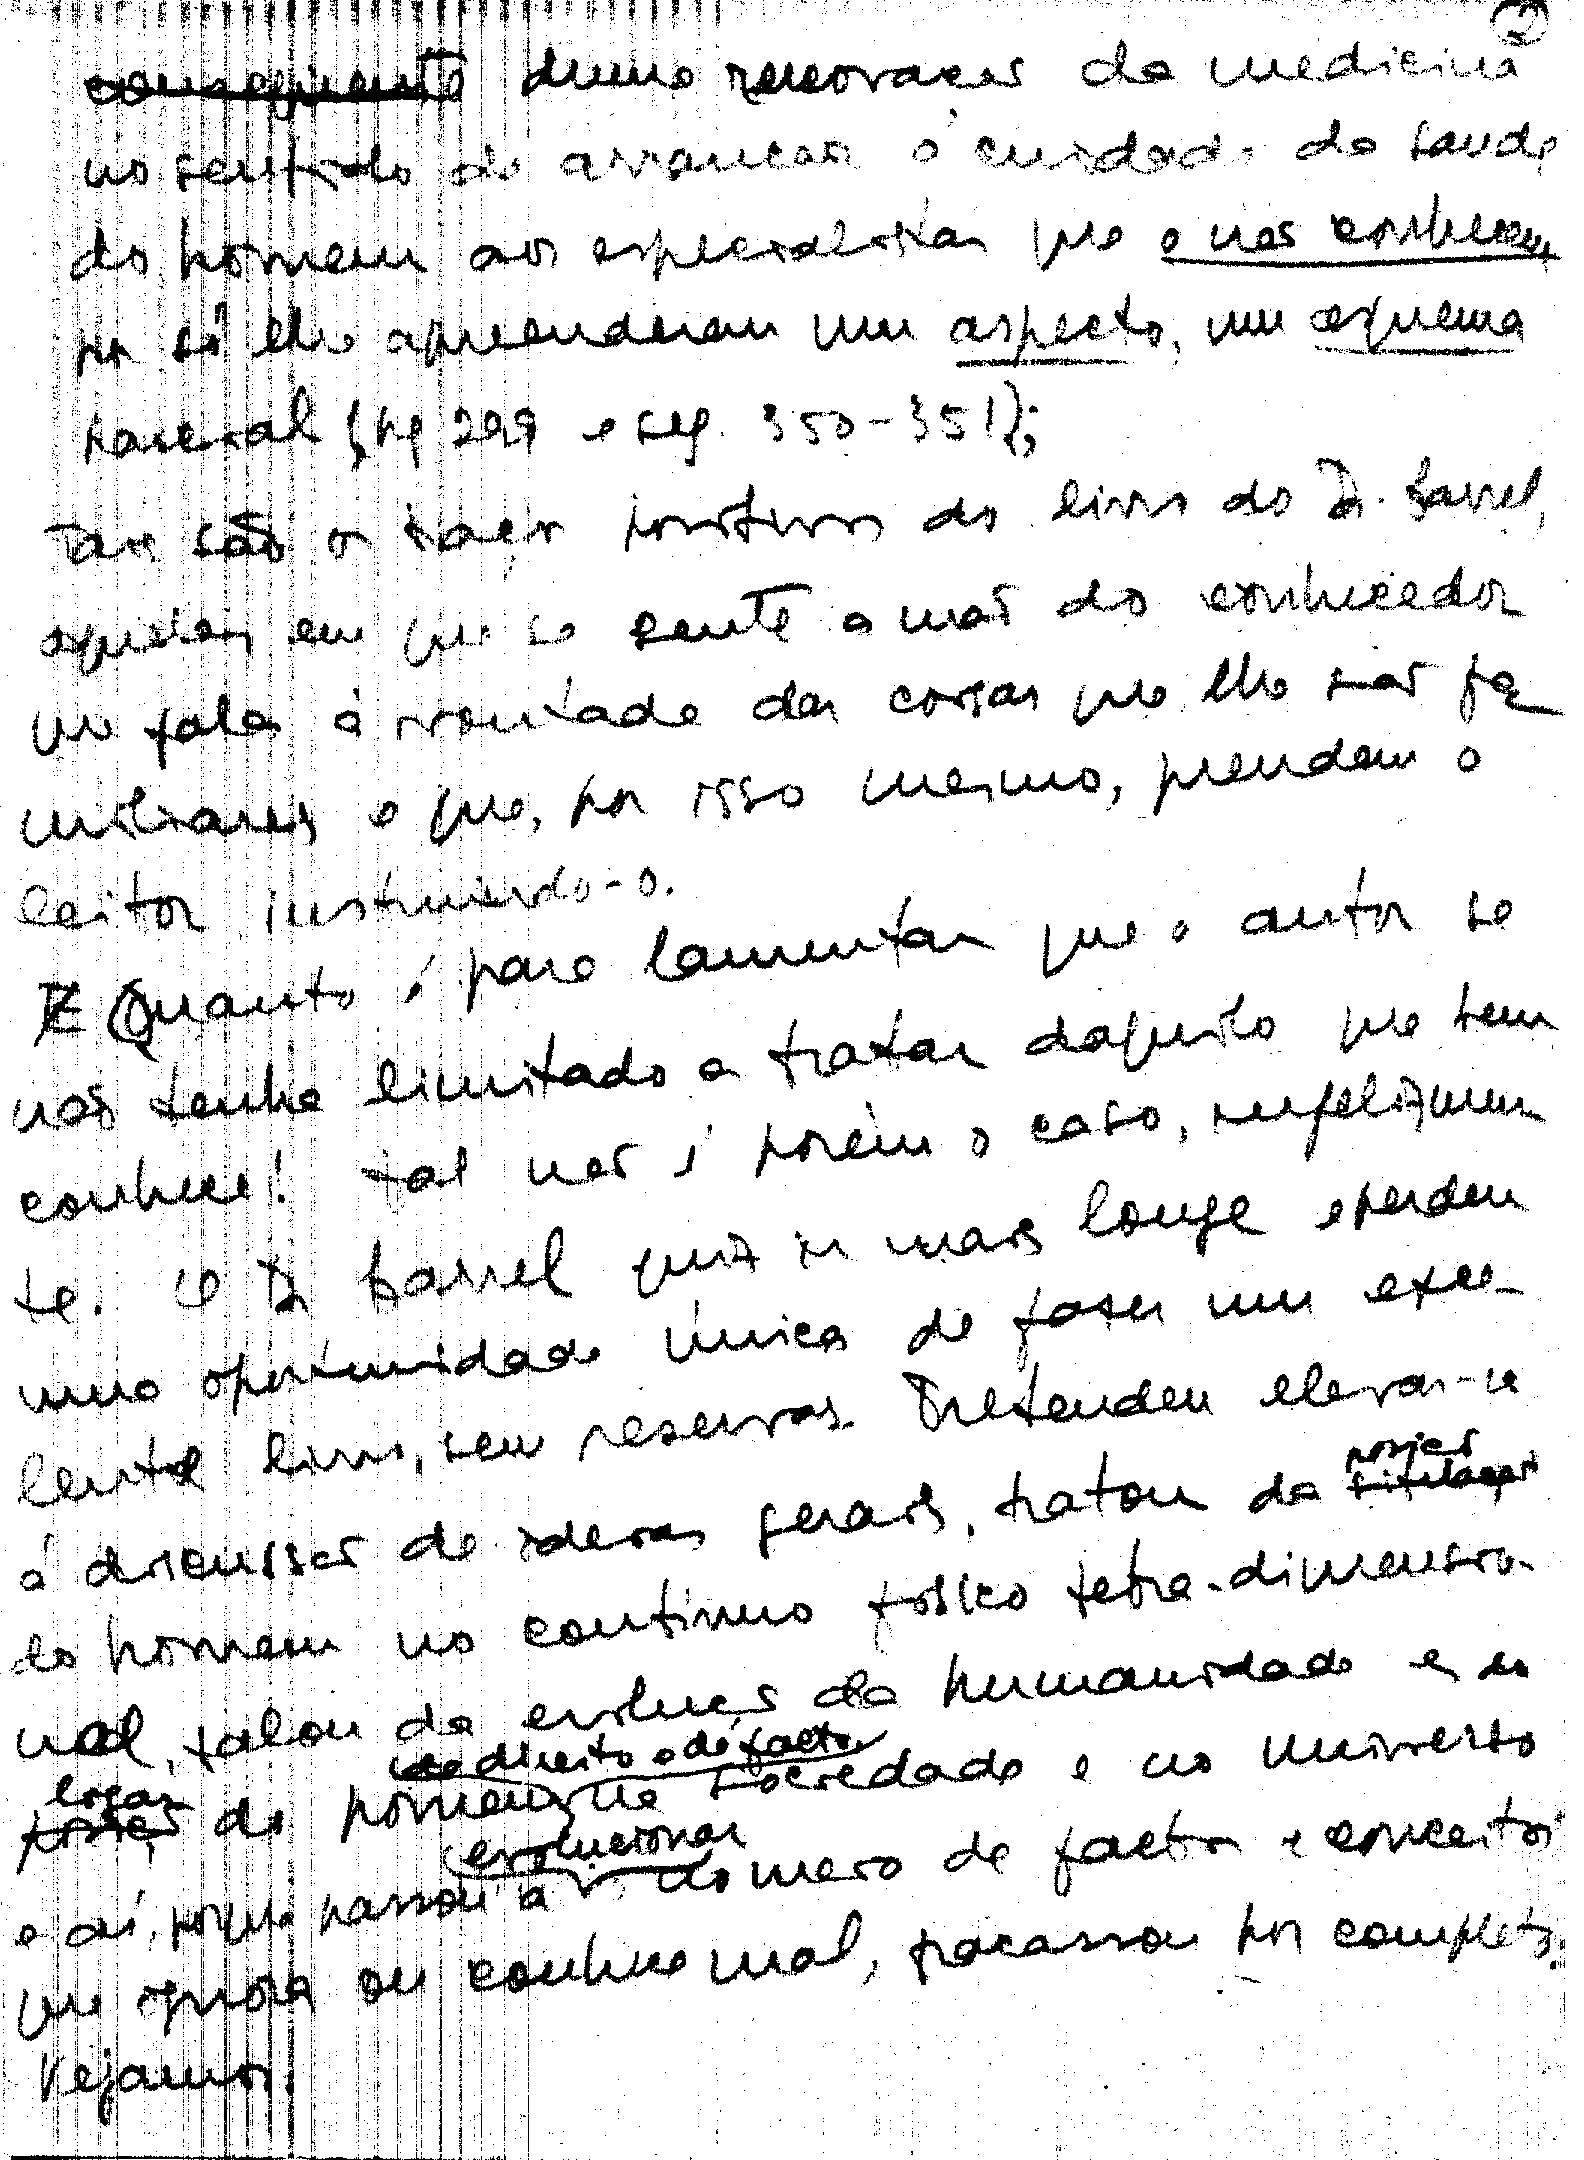 2
consequente duma renovação da medicina
no sentido de arrancar o cuidado da saude
do homem aos especialistas que o não conhecem,
por só lhe aprenderem um aspecto, um esquema
parcial (pg 299 e seg. 350-351);
Tais são os traços positivos do livro do Dr. Carrel,
aqueles em que se sente a mão do conhecedor
que fala á vontade das coisas que lhe são fa
miliares e que, por isso mesmo, prendem o
leitor instruindo-o.
Quanto é para lamentar que o autor se
não tenha limitado a tratar daquilo que tem
conhece! Tal não é porém o caso, infelizmen
te. O Dr Carrel quiz ir mais longe e perdeu
uma oportunidade única de fazer um exce-
lente livro, sem reservas. Pretendeu elevar-se
posição
á discussão de ideias gerais, tratou da situação
do homem no continuo fisico tetra-dimensio-
nal, falou da evolução da humanidade e do
de direito e de facto
lugar
posição do homem, na sociedade e no universo
evolucionar
e aí, porque passou a do mero de factos e conceitos
que ignora ou conhece mal, fracassou por completo.
Vejamos.